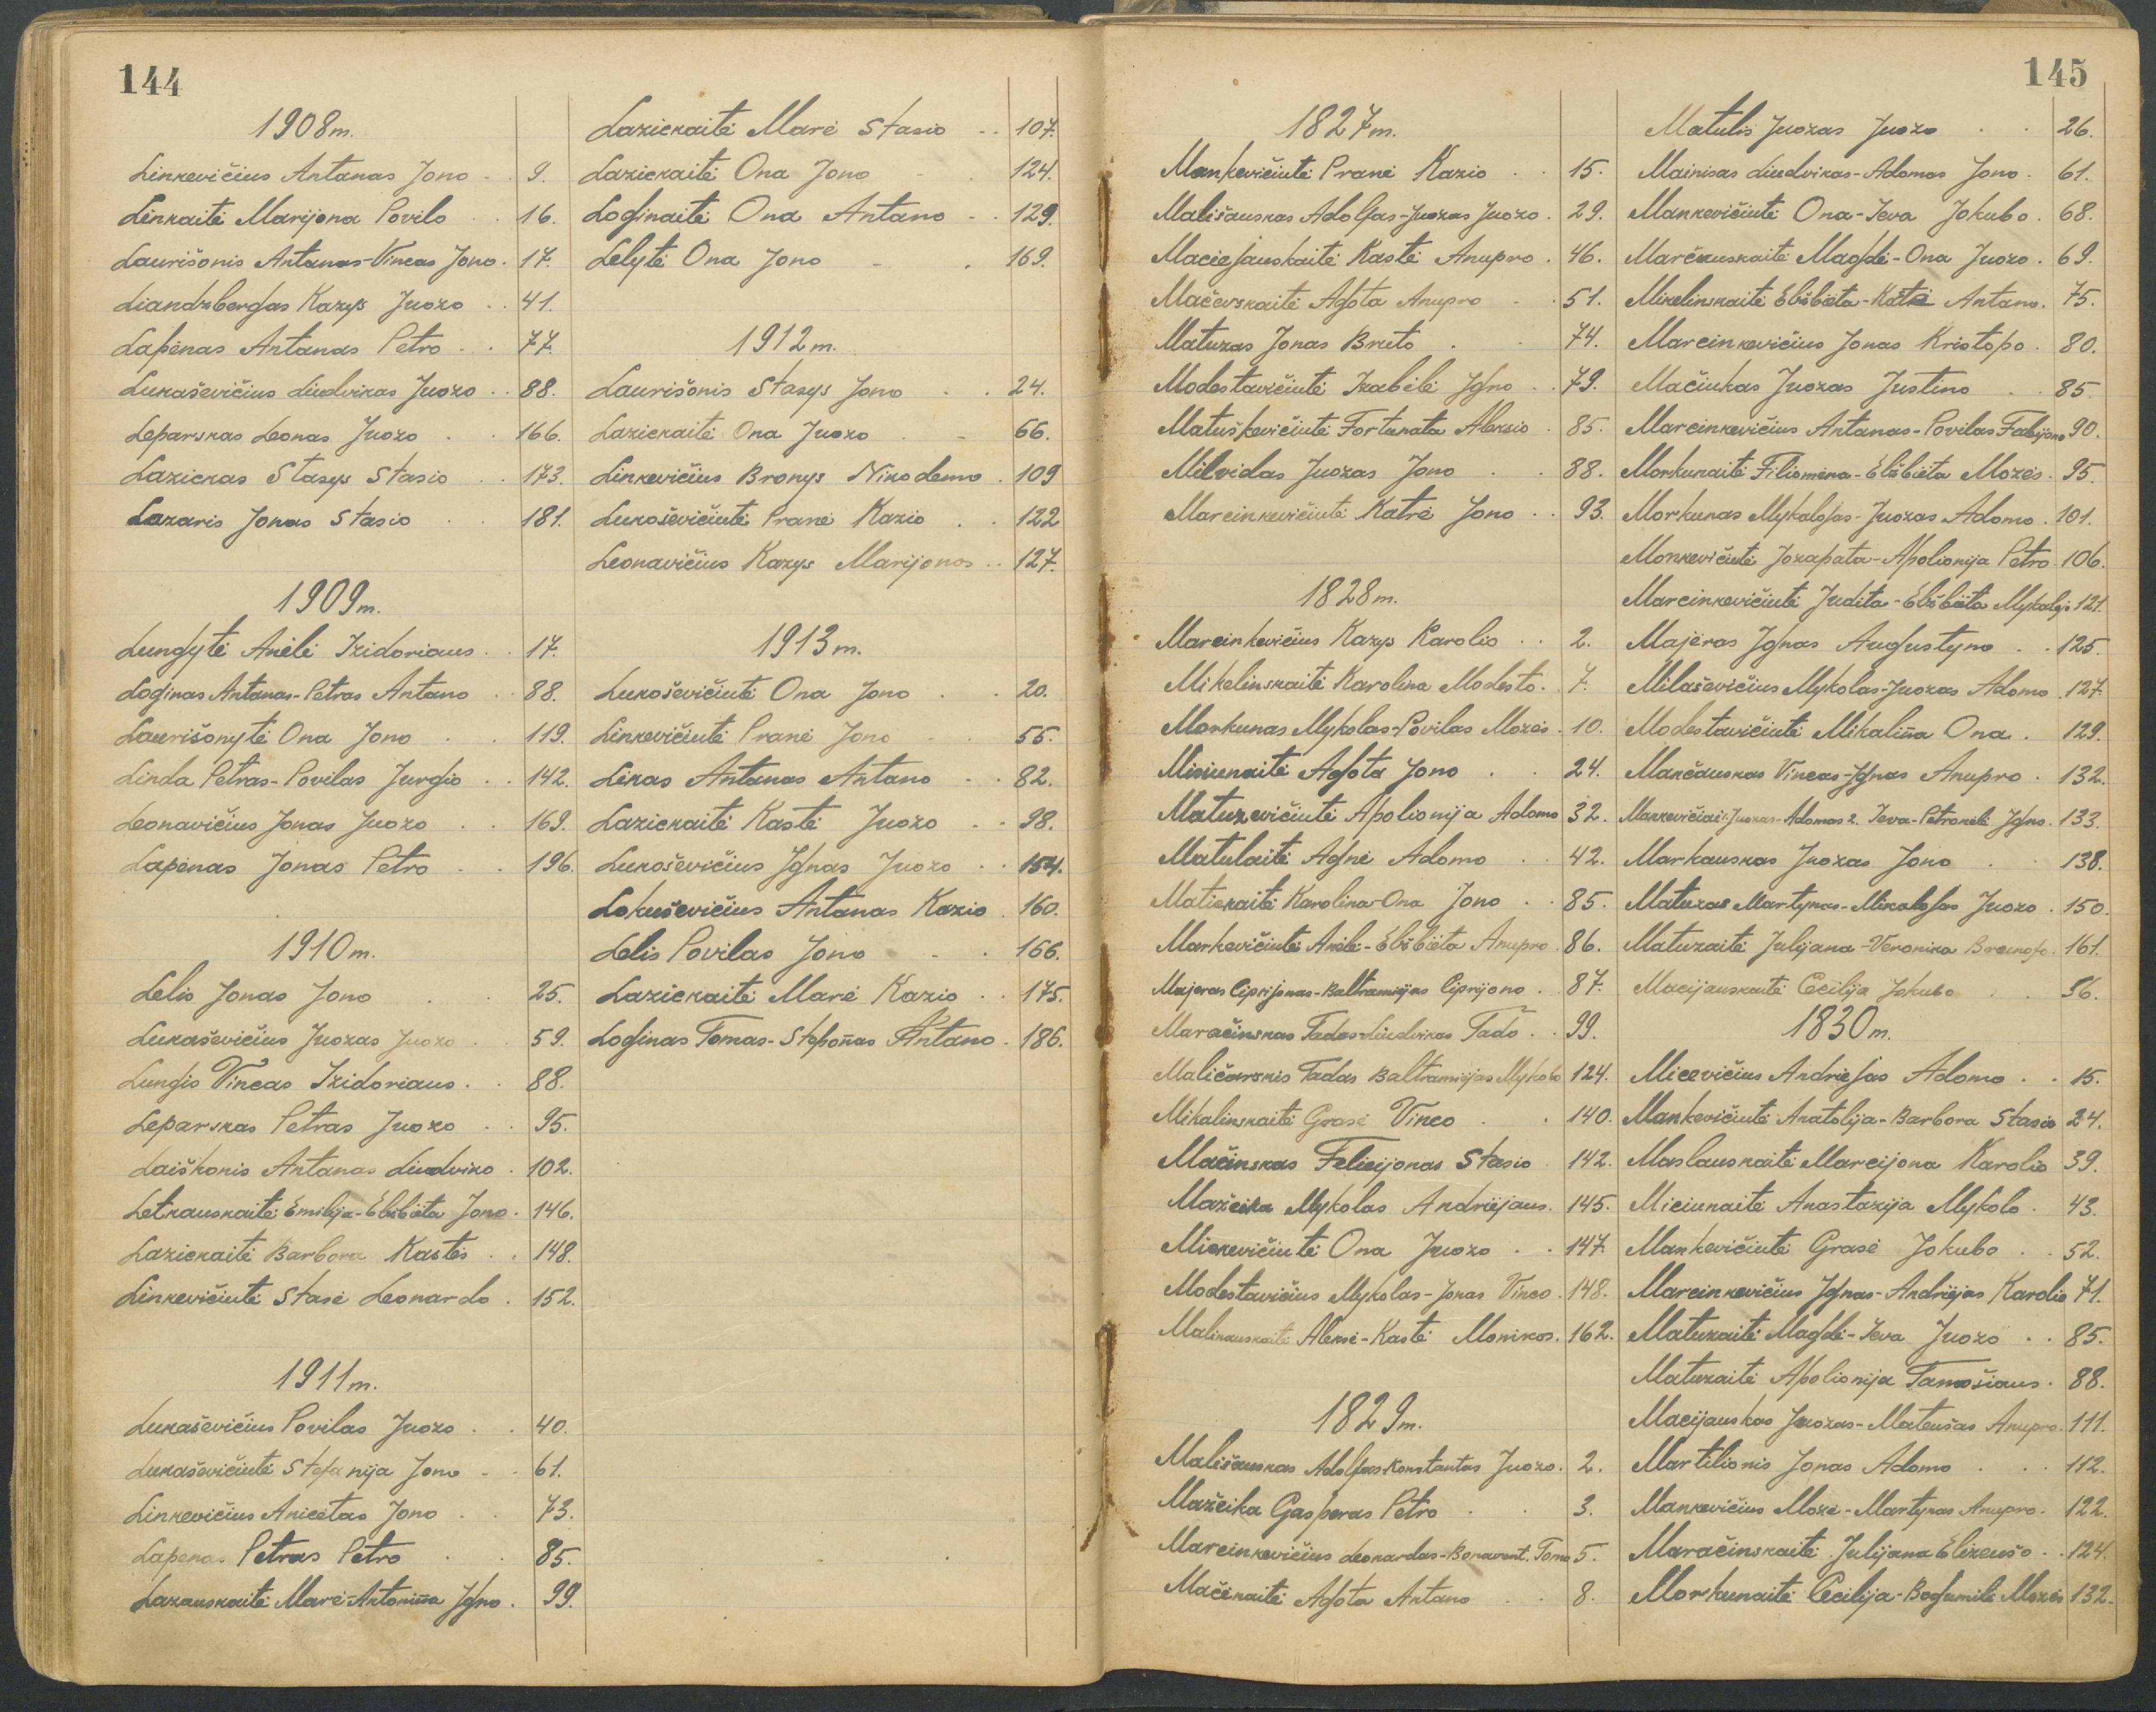 144
1908m.
Linkevičius Antanas Jono 9.
Linkaitė Marijona Povilo 16.
Laurišonis Antanas-Vincas Jono. 17.
Liandzbergas Kazys Juozo 41.
Lapėnas Antanas Petro 77.
Lukaševičius Liudvikas Juozo 88.
Leparskas Leonas Juozo 166.
Lazickas Stasys Stasio 173.
Lazaris Jonas Stasio 181.
1909m.
Lungytė Anelė Izidoriaus 17.
Loginas Antanas-Petras Antano 88.
Laurišonytė Ona Jono 119.
Linda Petras-Povilas Jurgio 142.
Leonavičius Jonas Juozo 169.
Lapėnas Jonas Petro 196.
1910m.
Lelis Jonas Jono 25.
Lukaševičius Juozas Juozo 59.
Lungis Vincas Izidoriaus. 88.
Leparskas Petras Juozo 95.
Laiškonis Antanas Liudviko 102.
Letkauskaitė Emilija-Elzbieta Jono. 146.
Lazickaitė Barbora Kastės 148.
Linkevičiutė Stasė Leonardo. 152.
1911m.
Lukaševičius Povilas Juozo 40.
Lukaševičiutė Stefanija Jono 61.
Linkevičius Anicetas Jono 73.
Lapėnas Petras Petro 85.
Lazauskaitė Marė-Antonina Igno. 99.
Lazickaitė Marė Stasio 107.
Lazickaitė Ona Jono 124.
Loginaitė Ona Antano 129.
Lelytė Ona Jono 169.
1912m.
Laurišonis Stasys Jono 24.
Lazickaitė Ona Juozo 66.
Linkevičius Bronys Nikodemo. 109
Lukoševičiutė Pranė Kazio 122
Leonavičius Kazys Marijonos 127.
1913m.
Lukoševičiutė Ona Jono 20.
Linkevičiutė Pranė Jono 55.
Lekas Antanas Antano 82.
Lazickaitė Kastė Juozo 98.
Lukoševičius Ignas Juozo 154.
Lokuševičius Antanas Kazio. 160.
Lelis Povilas Jono 166.
Lazickaitė Marė Kazio 175.
Loginas Tomas-Steponas Antano. 186.
145
1827m.
Mankevičiutė Pranė Kazio 15.
Mališauskas Adolfas-Juozas Juozo. 29.
Maciejauskaitė Kastė Anupro. 46.
Mačevskaitė Agota Anupro 51.
Matuzas Jonas Bruto 74.
Modestavičiutė Izabėlė Igno 79.
Matuškevičiutė Fortunata Aleksio. 85.
Milvidas Juozas Jono 88.
Marcinkevičiutė Katrė Jono 93.
1828m.
Marcinkevičius Kazys Karolio 2.
Mikelinskaitė Karolina Modesto. 7.
Morkunas Mykolas-Povilas Mozės. 10.
Misiunaitė Agota Jono 24.
Matuzevičiutė Apolionija Adomo 32.
Matulaitė Agnė Adomo 42.
Matickaitė Karolina-Ona Jono 85.
Markevičiutė Anelė-Elžbieta Anupro. 86.
Majeras Ciprijonas-Baltramiejus Ciprijono. 87.
Maračinskas Tadas-Liudvikas Tado. 99.
Maličevskis Tadas Baltramiejas Mykolo 124.
Mikalinskaitė Grasė Vinco 140.
Mačinskas Felicijonas Stasio. 142.
Mažeika Mykolas Andriejaus. 145.
Mickevičiutė Ona Juozo 147.
Modestavičius Mykolas-Jonas Vinco. 148.
Malinauskaitė Aleksė-Kastė Monikos. 162.
1829m.
Mališauskas Adolfas-Konstantas Juozo. 2.
Mažeika Gasperas Petro 3.
Marcinkevičius Leonardas-Bonavent. Tomo 5.
Mačėnaitė Agota Antano 8.
Matulis Juozas Juozo 26.
Mainisas Liudvikas-Adomas Jono. 61.
Mankevičiutė Ona-Ieva Jokubo. 68.
Marčkuskaitė Magdė-Ona Juozo. 69.
Mikelinskaitė Elžbieta-Katrė Antano. 75.
Marcinkevičius Jonas Kristopo. 80.
Mačiukas Juozas Justino 85.
Marcinkevičius Antanas-Povilas Fabijono 90.
Morkunaitė Filiomena-Elžbieta Mozės. 95.
Morkunas Mykolojas-Juozas Adomo. 101.
Monkevičiutė Jozapata-Apolionija Petro. 106.
Marcinkevičiutė Judita-Elžbieta Mykolojo 121.
Majeras Ignas Augustyno 125.
Milaševičius Mykolas-Juozas Adomo. 127.
Modestavičiutė Mikalina Ona. 129.
Mančauskas Vincas-Ignas Anupro. 132.
Mankevičiai: Juozas-Adomas 2. Ieva-Petronelė Igno. 133.
Markauskas Juozas Jono 138.
Matuzas Martynas-Mikalojas Juozo. 150.
Matuzaitė Julijana-Veronika 161.
Macijauskaitė Cecilija Jokubo 56.
1830m.
Micevičius Andriejas Adomo 15.
Mankevičiutė Anatolija-Barbora Stasio 24.
Maslauskaitė Marcijona Karolio 39.
Miciunaitė Anastazija Mykolo. 43.
Mankevičiutė Grasė Jokubo 52.
Marcinkevičius Ignas-Andriejas Karolio 71.
Matuzaitė Magdė-Ieva Juozo 85.
Matuzaitė Apolionija Tamošiaus. 88.
Macijauskas Juozas-Mateušas Anupro. 111.
Martilionis Jonas Adomo 112.
Mankevičius Mozė-Martynas Anupro. 122.
Maračinskaitė Julijana Elizeušo 124.
Morkunaitė Cecilija-Bogumilė Mozės 132.